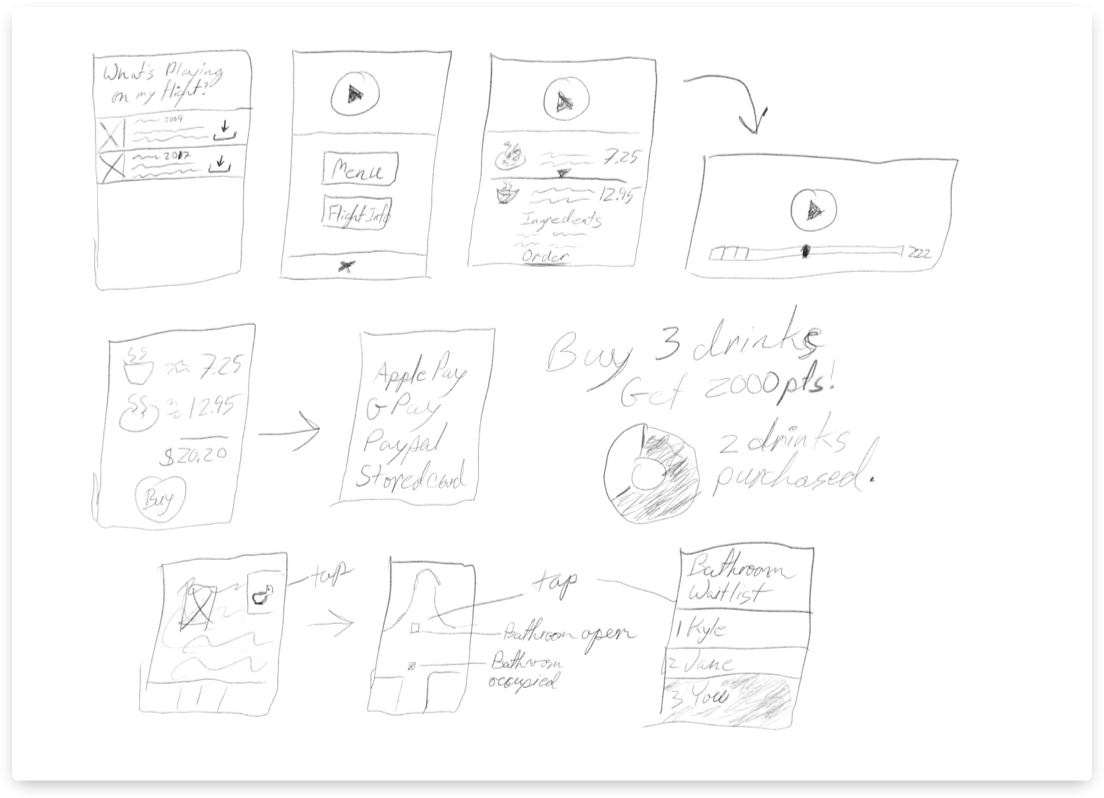 What's Playing
on my flight?
2009
2012
Menu
Flight Info
7.25
12.95
Ingredients
Order
222
7.25
12.95
$20.20
Buy
Apple Pay
G Pay
Paypal
Stored card
Buy 3 drinks
Get 2000pts!
2 drinks
purchased.
tap
tap
Bathroom open
Bathroom
occupied
Bathroom
Waitlist
1 Kyle
2 Jane
3 You